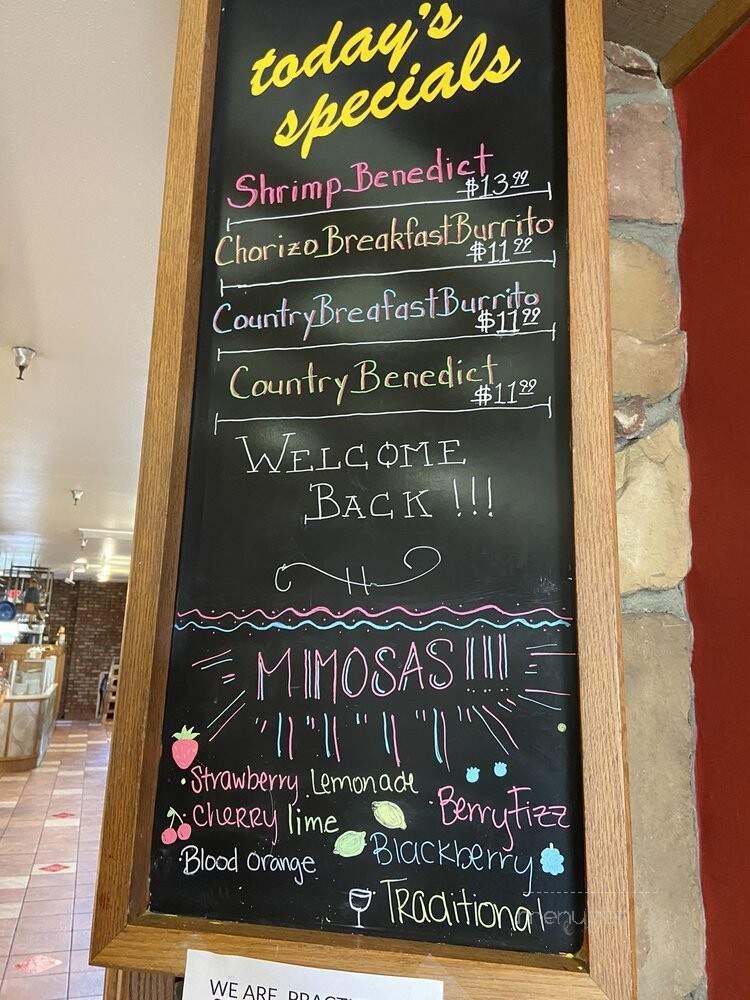 today's
specials
Shrimp Benedict
$13.99
Chorizo Breakfast Burrito
$11.99
Country Breafast Burrito
$11.99
Country Benedict
$11.99
WELCOME
BACK!!!
MIMOSAS!!!
• Strawberry Lemonade
• Cherry lime
• Berry Fizz
• Blood orange
Blackberry
Traditional
WE ARE